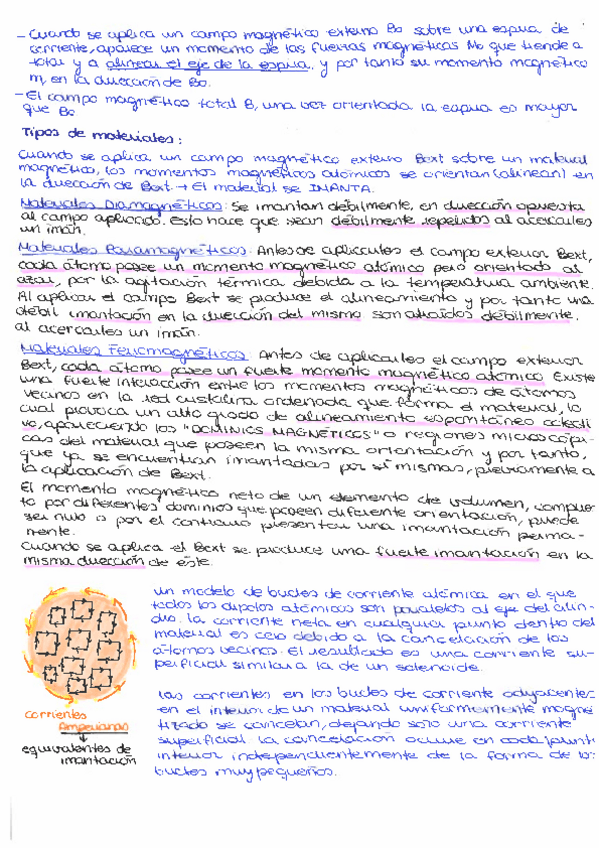 - Cuando se aplica un campo magnético externo Bo sobre una espira de
corriente, aparece un momento de las fuerzas magnéticas Mo que tiende a
rotar y a alinear el eje de la espira, y por tanto su momento magnético
m, en la dirección de Bo.
- El campo magnético total B, una vez orientada la espira es mayor
que Bo
Tipos de materiales:
Cuando se aplica un campo magnético externo Bext sobre un material
magnético, los momentos magnéticos atómicos se orientan (alinean) en
la dirección de Bext. → El material se IMANTA.
Materiales Diamagnéticos: Se imantan debilmente, en dirección opuesta
al campo aplicado. Esto hace que sean debilmente repelidos al acercarles
un imán.
Materiales Paramagnéticos: Antes de aplicarles el campo exterior Bext,
cada átomo posee un momento magnético atómico pero orientado al
azar, por la agitación térmica debida a la temperatura ambiente.
Al aplicar el campo Bext se produce el alineamiento y por tanto una
débil imantación en la dirección del mismo son atraidos débilmente.
al acercarles un imán.
Materiales Ferromagnéticos: Antes de aplicarles el campo exterior
Bext, cada átomo posee un fuerte momento magnético atómico. Existe
una fuerte interacción entre los momentos magnéticos de átomos
vecinos en la red cristalina ordenada que forma el material, lo
cual provoca un alto grado de alineamiento espontáneo colecti
vo, apareciendo los "DOMINIOS MAGNÉTICOS" o regiones microscópi-
cas del material que poseen la misma orientación y por tanto,
que ya se encuentran imantadas por sí mismas, previamente a
la aplicación de Bext.
El momento magnético neto de un elemento de volumen, compues
to por diferentes dominios que poseen diferente orientación, puede
ser nulo o por el contrario presentar una imantación perma-
nente.
Cuando se aplica el Bext se produce una fuerte imantación en la
misma dirección de éste.
un modelo de bucles de corriente atómica en el que
todos los dipolos atómicos son paralelos al eje del cilin-
dro. la corriente neta en cualquier punto dentro del
material es cero debido a la cancelación de los
átomos vecinos. El resultado es una corriente su-
perficial similar a la de un solenoide.
las corrientes en los bucles de corriente adyacentes
en el interior de un material uniformemente magne
tizado se cancelan, dejando solo una corriente
superficial. La cancelación ocurre en cada punto
interior independientemente de la forma de los
bucles muy pequeños.
corrientes
Amperianas
equivalentes de
imantación